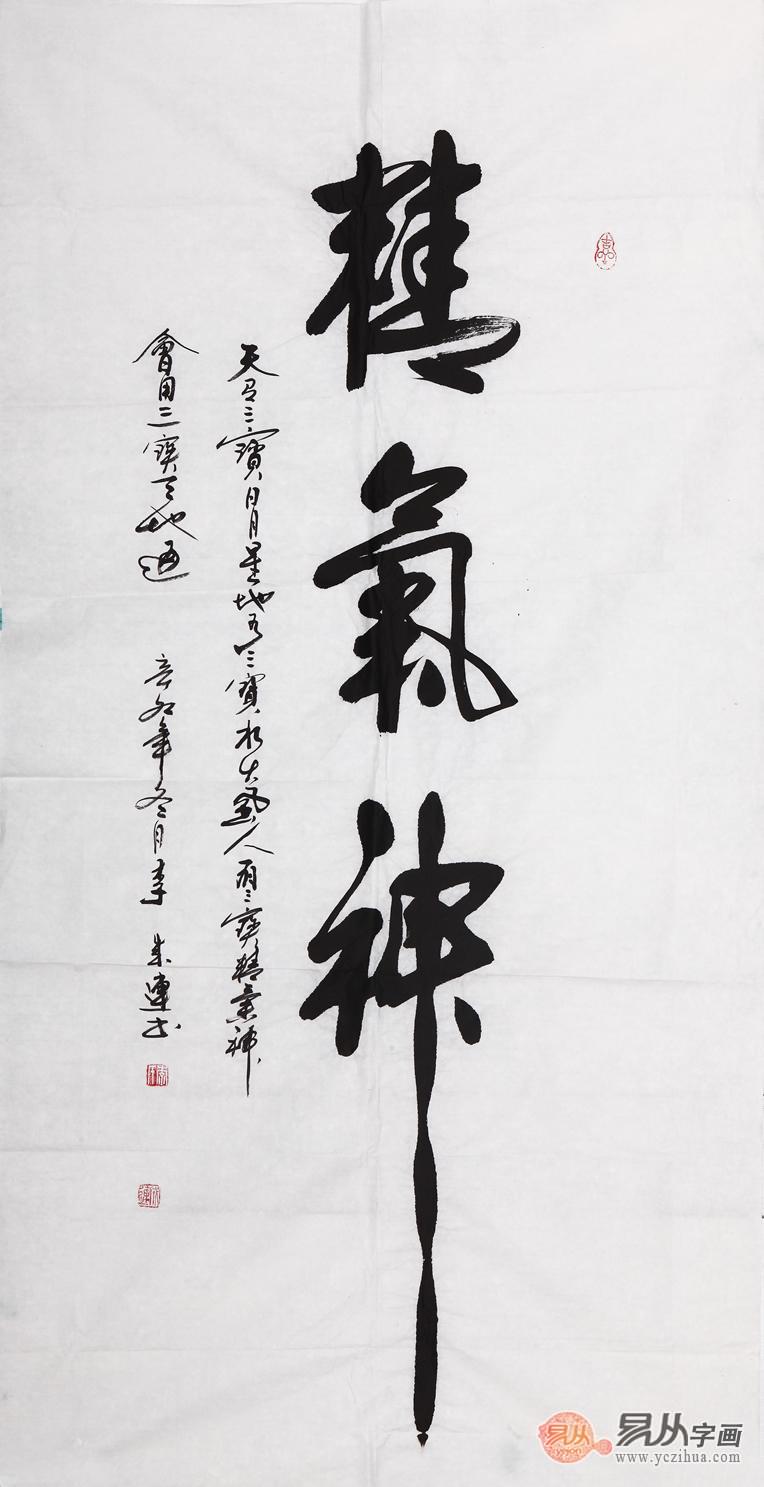 精氣神
天有三寶日月星地有三寶水火風人有三寶精氣神
會用三寶天地通
年冬月李成連书
易从
yycon
易从字画
www.yczihua.com